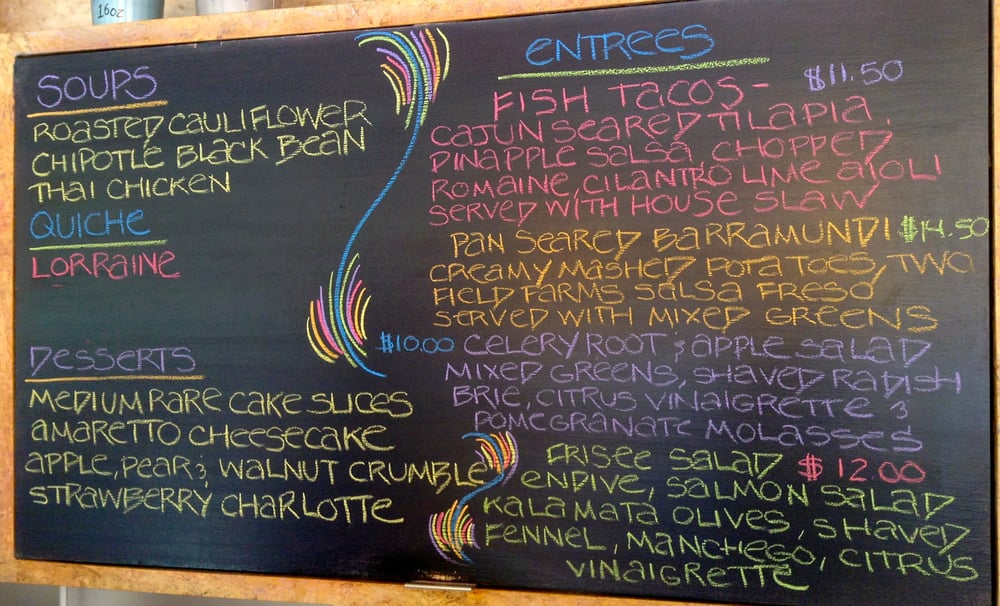 16oz
SOUPS
ROASTED CAULIFLOWER
CHIPOTLE BLACK BEAN
THAI CHICKEN
QUICHE
LORRAINE
DESSERTS
MEDIUM RARE CAKE SLICES
AMARETTO CHEESECAKE
APPLE, PEAR & WALNUT CRUMBLE
STRAWBERRY CHARLOTTE
ENTREES
FISH TACOS - $11.50
CAJUN SEARED TILAPIA,
PINAPPLE SALSA, CHOPPED
ROMAINE, CILANTRO LIME AIOLI
SERVED WITH HOUSE SLAW
PAN SEARED BARRAMUNDI $14.50
CREAMY MASHED POTATOES, TWO
FIELD FARMS SALSA FRESO
SERVED WITH MIXED GREENS
$10.00 CELERY ROOT & APPLE SALAD
MIXED GREENS, SHAVED RADISH
BRIE, CITRUS VINAIGRETTE &
POMEGRANATE MOLASSES
FRISEE SALAD $12.00
ENDIVE, SALMON SALAD
KALAMATA OLIVES, SHAVED
FENNEL, MANCHEGO, CITRUS
VINAIGRETTE